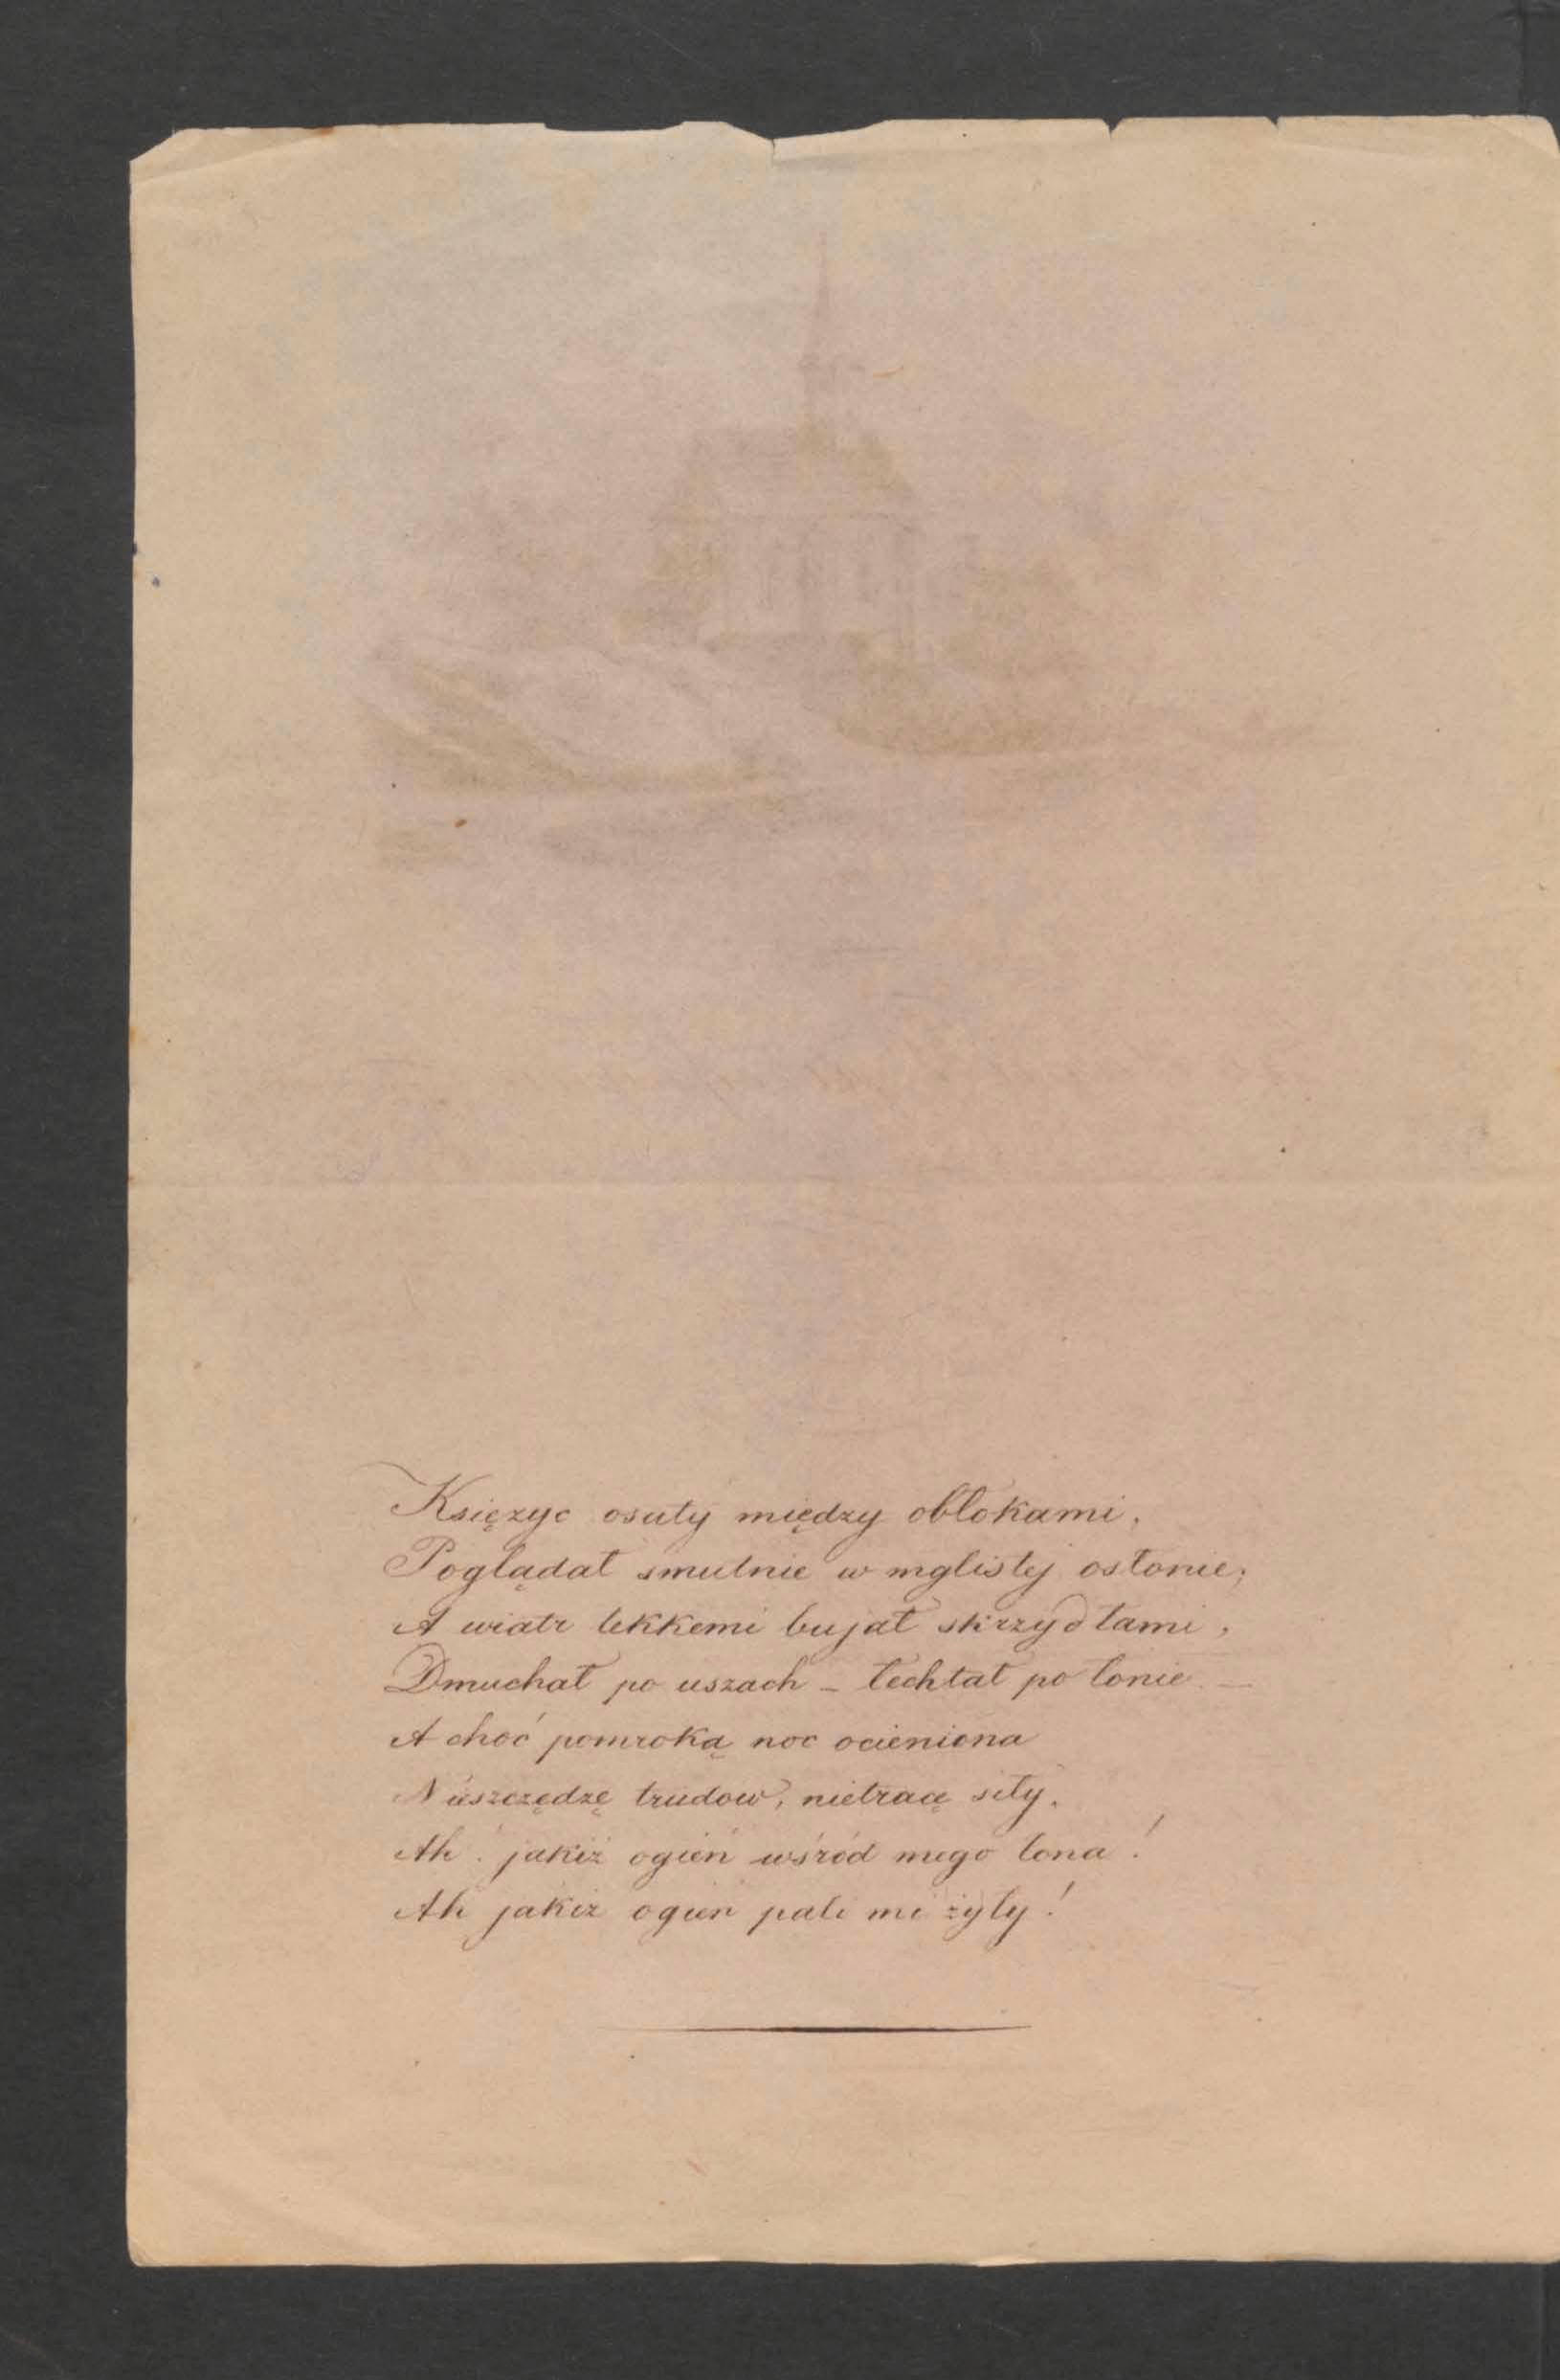 Księzyc osuty między obłokami,
Poglądał smutnie w mglistej osłonie;
A wiatr lekkemi bujał skrzydłami,
Dmuchał po uszach – łechtał po łonie –
A choć pomroką noc ocieniona
Nieszczędzę trudow, nietracę siły.
Ah! jakiż ogień wśród mego łona!
Ah jakiż ogień pali mi żyły!